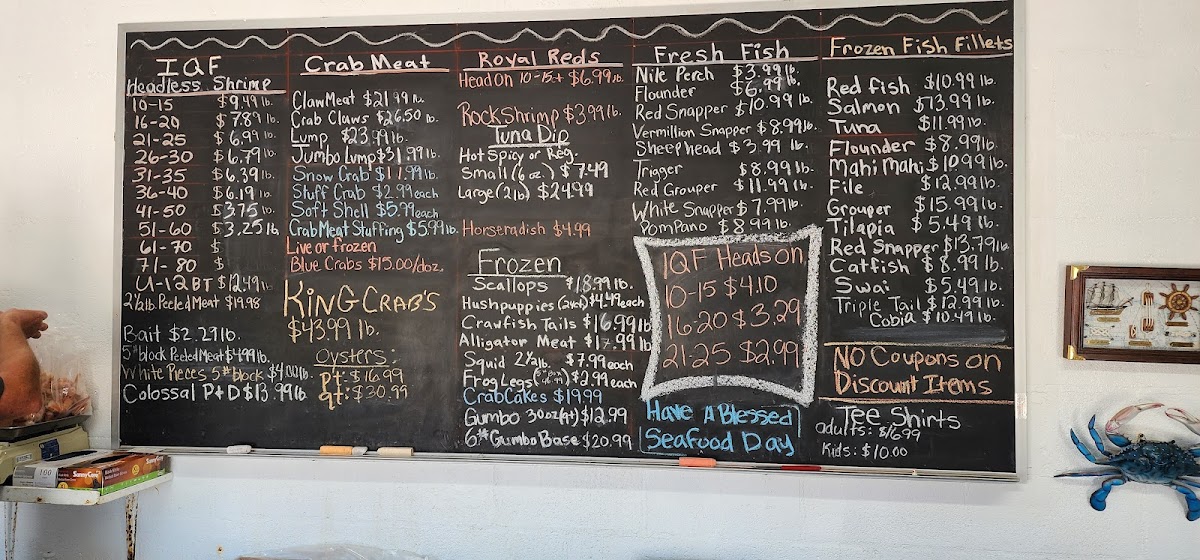 IQF
Headless Shrimp
10-15 $9.49 lb.
16-20 $7.89 lb.
21-25 $6.99 lb.
26-30 $6.79 lb.
31-35 $6.39 lb.
36-40 $6.19 lb.
41-50 $3.75 lb.
51-60 $3.25 lb
61-70 $
71-80 $
U-12 BT $12.49 lb.
2½lb Peeled Meat $19.98
Bait $2.29 lb.
5# block Peeled Meat $4.99 lb.
White Pieces 5# block $4.00 lb.
Colossal P+D $13.99 lb
Crab Meat
Claw Meat $21.99 lb.
Crab Claws $26.50 lb.
Lump $23.99 lb.
Jumbo Lump $31.99 lb.
Snow Crab $11.99 lb.
Stuff Crab $2.99 each
Soft Shell $5.99 each
Crab Meat Stuffing $5.99 lb.
Live or frozen
Blue Crabs $15.00/doz.
King Crab's
$43.99 lb.
Oysters:
Pt: $16.99
Qt: $30.99
Royal Reds
Head On 10-15ct $6.99 lb.
Rock Shrimp $3.99 lb.
Tuna Dip
Hot Spicy or Reg.
Small (6 oz.) $7.49
Large (2lb) $24.99
Horseradish $4.99
Frozen
Scallops $18.99 lb.
Hushpuppies $4.49 each
Crawfish Tails $16.99 lb
Alligator Meat lb.
Squid 2½lb. $7.99 each
Frog Legs $2.99 each
Crab Cakes $19.99
Gumbo 30oz (qt) $12.99
6# Gumbo Base $20.99
Fresh Fish
Nile Perch $3.99 lb.
Flounder $6.99 lb.
Red Snapper $10.99 lb.
Vermillion Snapper $8.99 lb.
Sheephead $3.99 lb.
Trigger $8.99 lb.
Red Grouper $11.99 lb.
White Snapper $7.99 lb.
Pompano $8.99 lb.
IQF Heads on
10-15 $4.10
16-20 $3.29
21-25 $2.99
Have A Blessed
Seafood Day
Frozen Fish Fillets
Red fish $10.99 lb.
Salmon $13.99 lb.
Tuna $11.99 lb.
Flounder $8.99 lb.
Mahi Mahi $10.99 lb.
File $12.99 lb.
Grouper $15.99 lb.
Tilapia $5.49 lb.
Red Snapper $13.79 lb.
Catfish $8.99 lb.
Swai $5.49 lb.
Triple Tail $12.99 lb.
Cobia $10.49 lb.
No Coupons on
Discount Items
Tee Shirts
adults: $16.99
Kids: $10.00
100